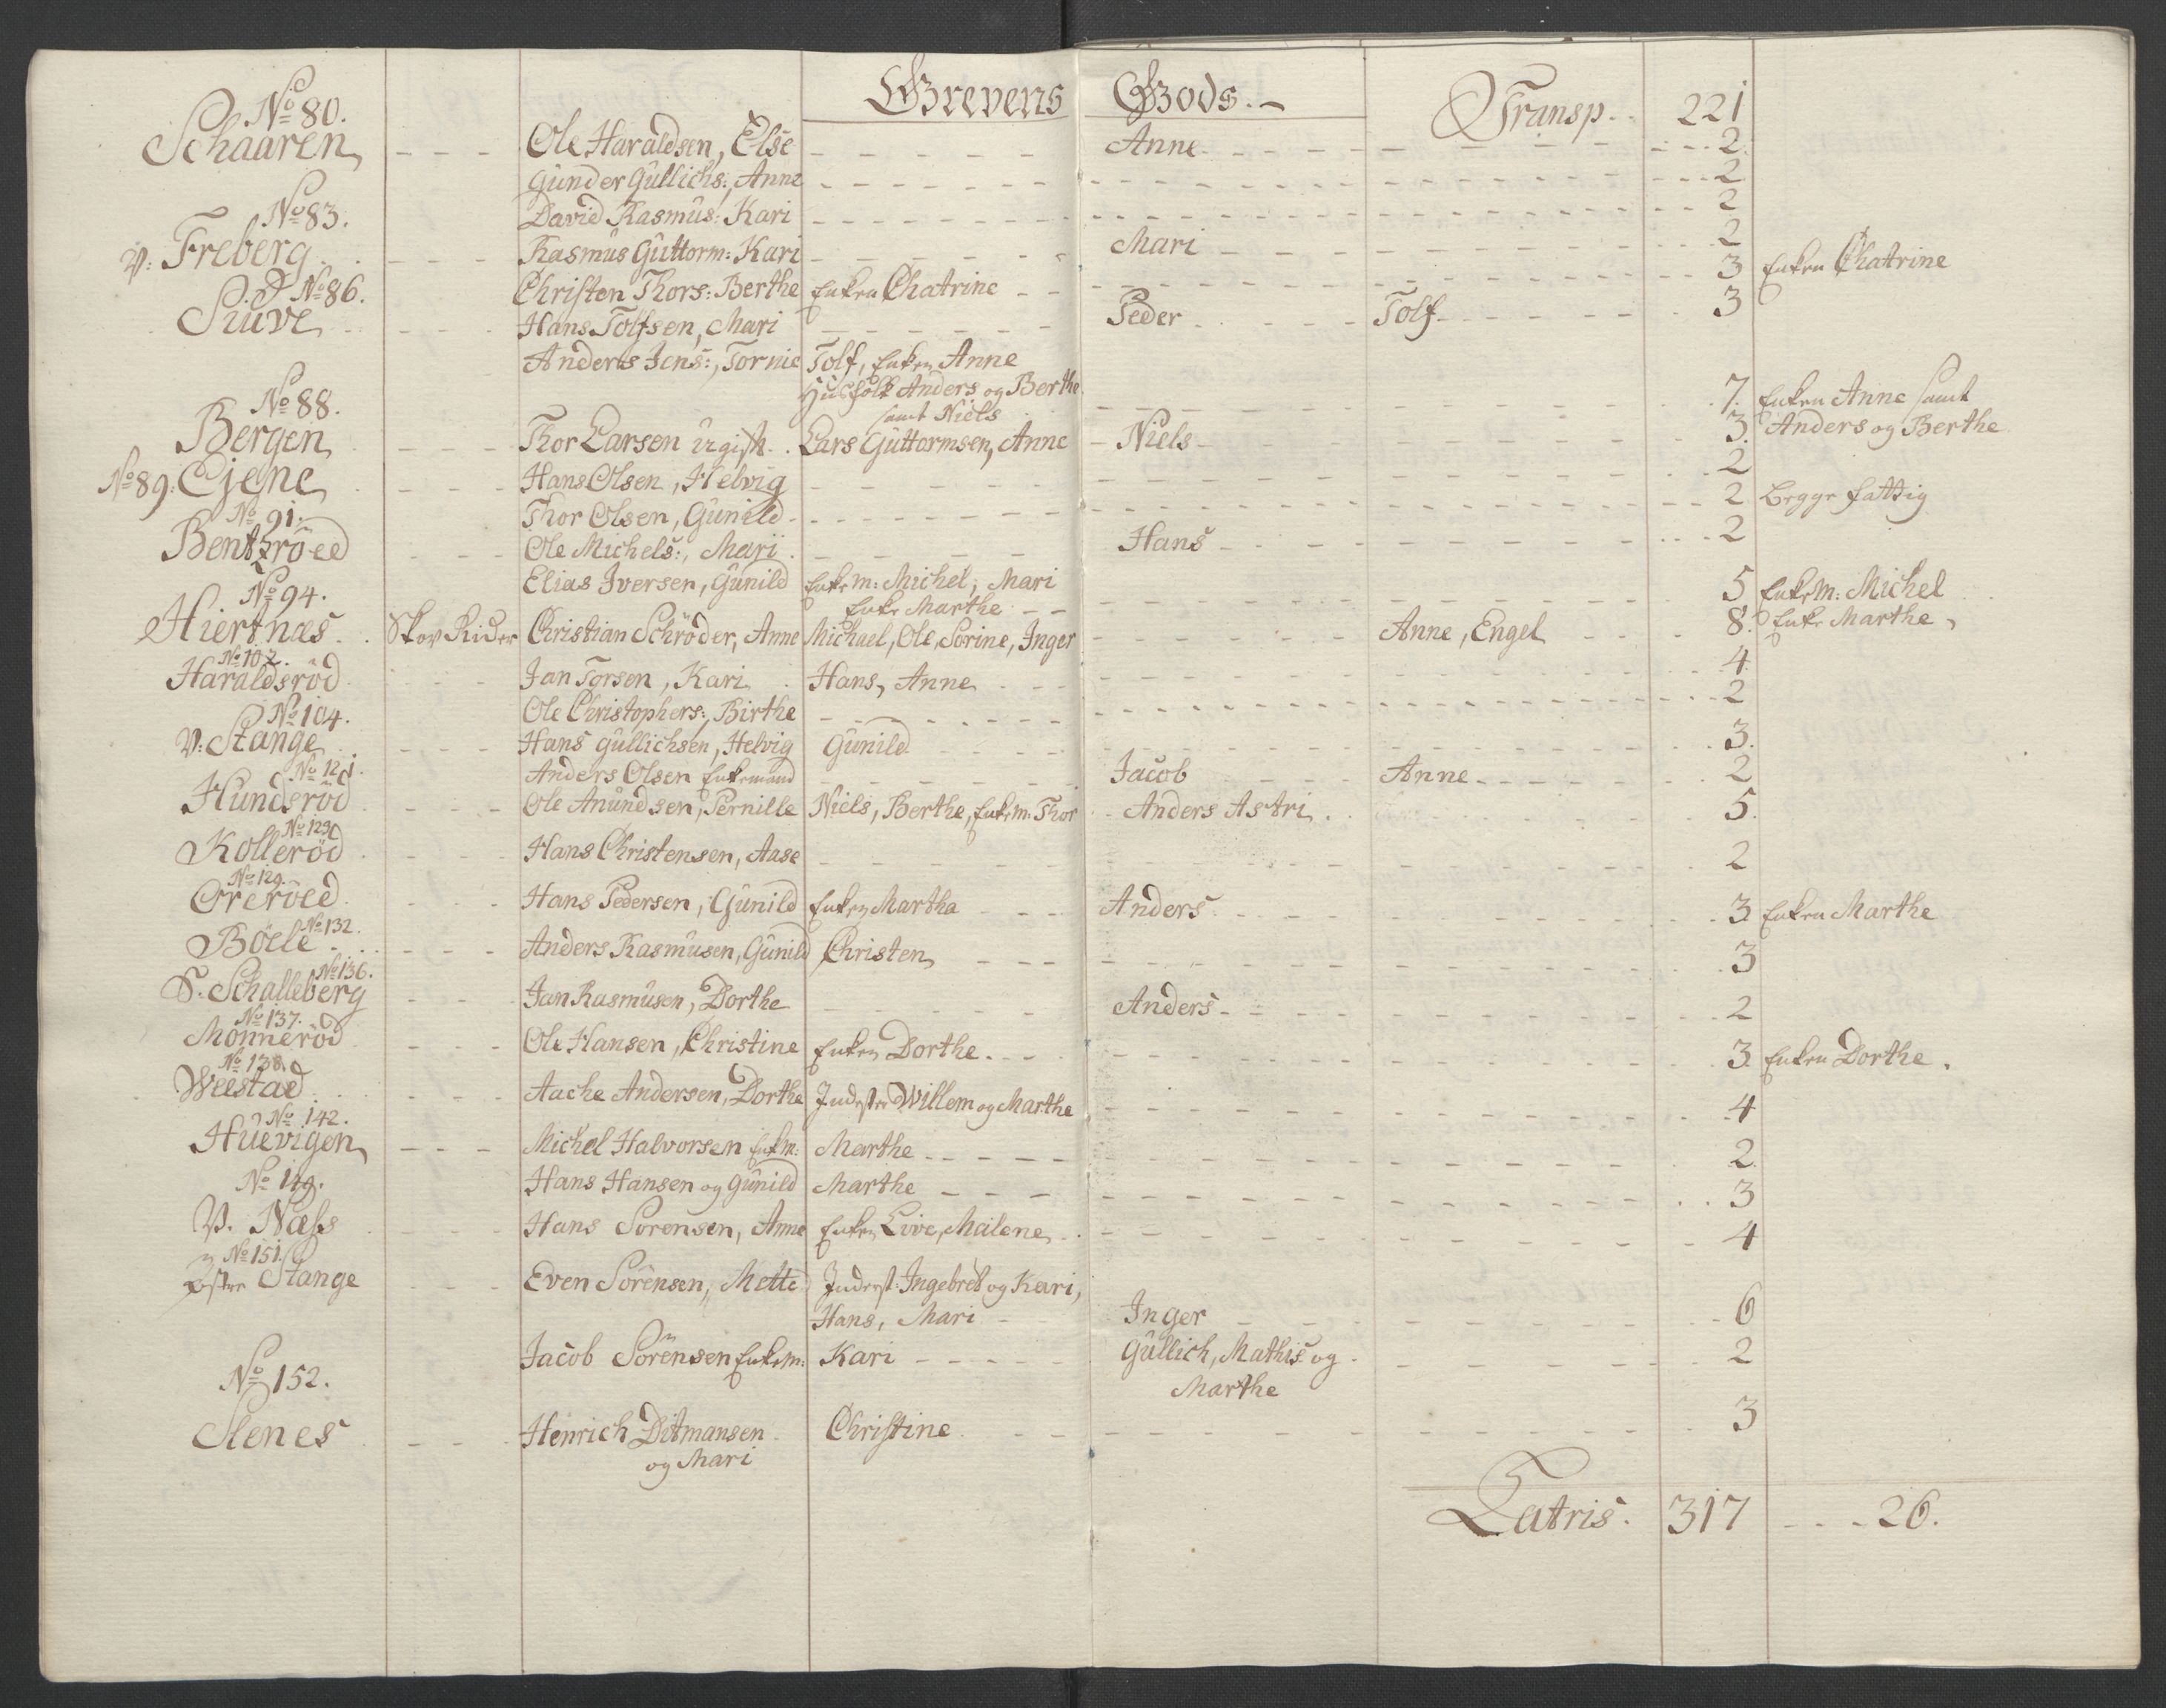 Grevens Gods.
Transp. 221
No 80.
Schaaren Ole Haraldsen, Else Anne 2
Gunder Gullichs:, Anne 2
No 83. David Rasmus: Kari 2
V: Freberg Rasmus Guttorm: Kari Mari 2
No 86. Christen Thors: Berthe Enken Chatrine 3 Enken Chatrine
Hans Tolfsen, Mari Peder Tolf 3
Anders Jens:, Tornie Tolf, Enken Anne
Husfolk Anders og Berthe
No 88. samt Niels 7. Enken Anne samt
Bergen Thor Larsen ugift. Lars Guttormsen, Anne Niels 3. Anders og Berthe
No 89. Ejene Hans Olsen, Helvig 2
No 91. Thor Olsen, Gunild 2 begge fattig
Bentzröed Ole Michels:, Mari Hans 2
Elias Iversen, Gunild Enkem: Michel, Mari
No 94. Enke Marthe 5 Enkem: Michel
Hiertnæs Skov Rider Christian Schröder, Anne Michael, Ole, Sorine, Inger Anne, Engel 8. Enke Marthe
No 102.
Haraldsröd Jan Torsen, Kari Hans, Anne 4
No 104. Ole Christophers:, Birthe 2
V: Stange Hans Gullichsen, Helvig Gunild 3.
No 121. Anders Olsen Enkemand Jacob Anne 2
Hundsröd Ole Anundsen, Pernille Niels, Berthe, Enkem: Thor Anders Astri 5.
No 123
Kolleröd Hans Christensen, Aase 2
No 129.
Orreröed Hans Pedersen, Gunild Enken Martha Anders 3 Enken Marthe
No 132.
Böele Anders Rasmusen, Gunild Christen 3
No 136.
S. Schalleberg Jan Rasmusen, Dorthe Anders 2
No 137.
Monneröd Ole Hansen, Christine Enken Dorthe 3 Enken Dorthe.
No 138.
Weestad Aache Andersen, Dorthe Inderster Willem og Marthe 4
No 142.
Huevigen Michel Halvorsen Enkm: Marthe 2.
No 149. Hans Hansen og Gunild Marthe 3
V. Næss Hans Sorensen, Anne Enken Live, Malene 4
No 151.
østre Stange Even Sörensen, Mette Inderst: Ingebret og Kari,
Hans, Mari Inger 6
Jacob Sörensen Enkem: Kari Gullich, Mathis og 2
No 152. Marthe
Henrich Ditmansen Christine 3
og Mari
Latris. 317 26.